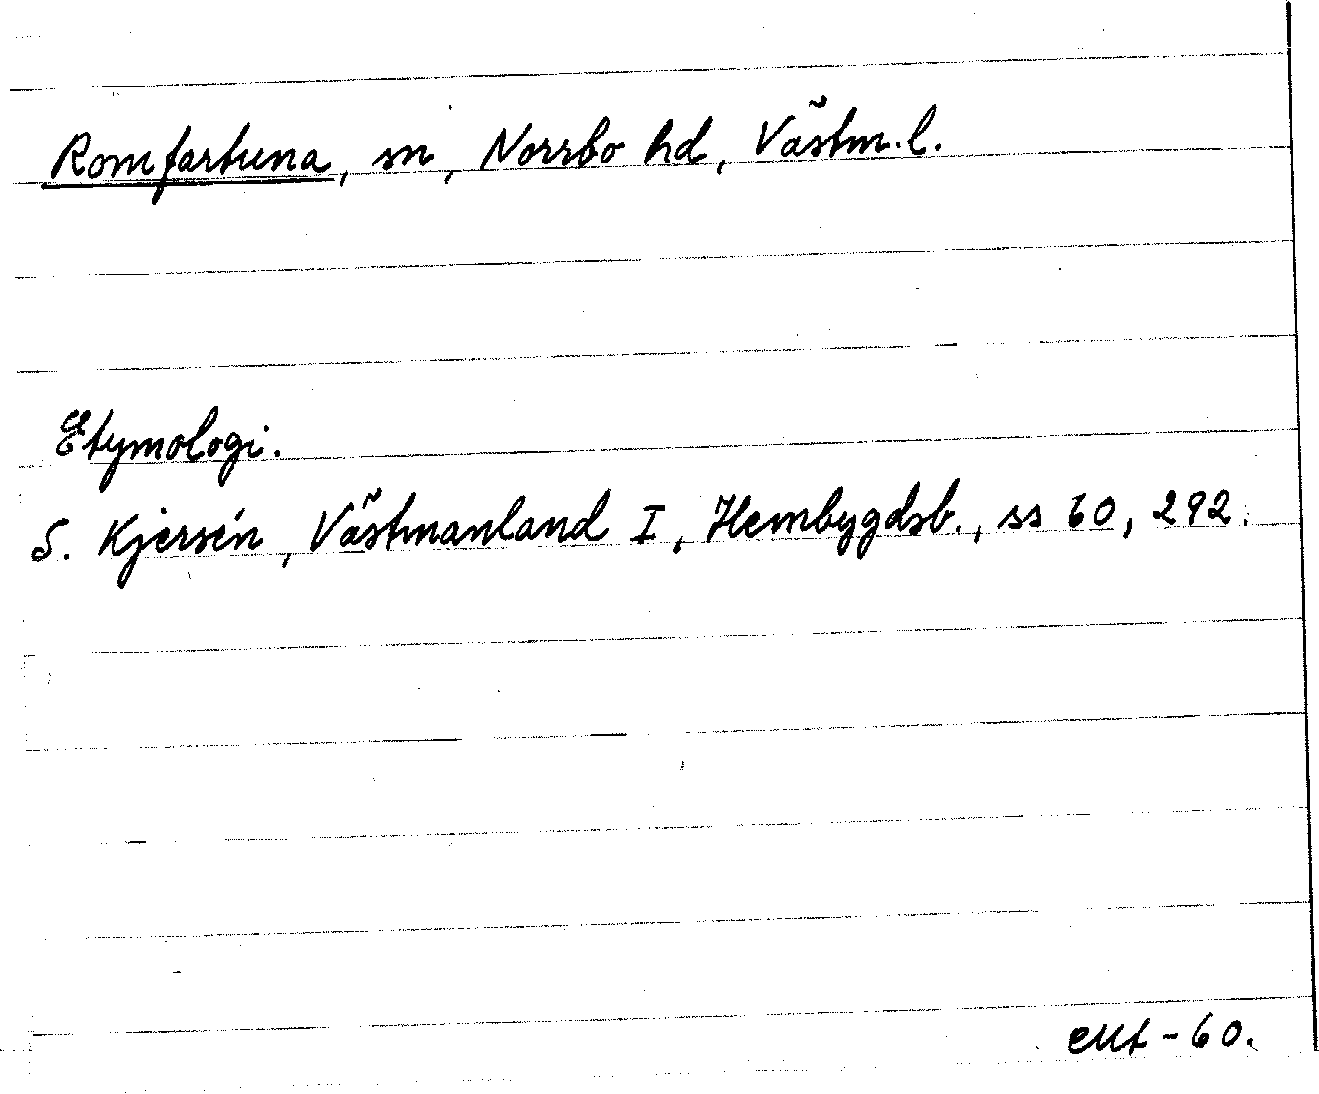 Romfartuna, sn, Norrbo hd, Västm. l.
Etymologi.
S. Kjersén, Västmanland I, Hembygdsb., ss 60, 292.
-60.